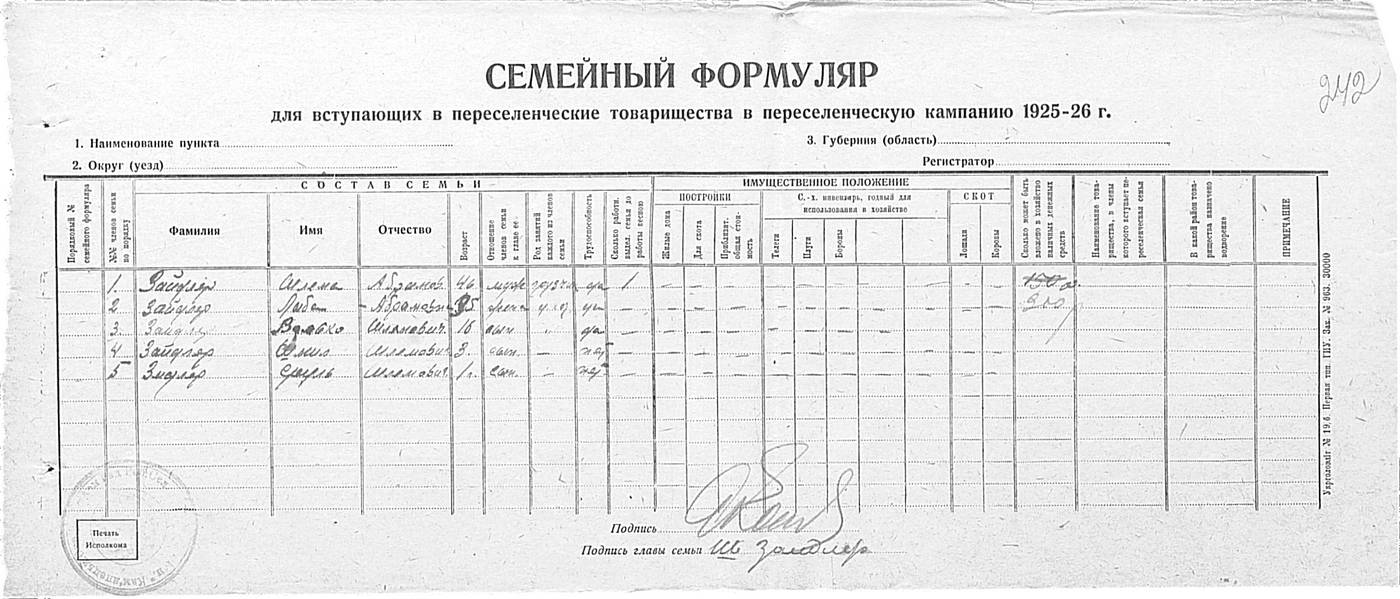 242
СЕМЕЙНЫЙ ФОРМУЛЯР
для вступающих в переселенческие товарищества в переселенческую кампанию 1925-26 г.
1. Наименование пункта
3. Губерния (область)
2. Округ (уезд)
Регистратор
Порядковый № семейного формуляра
№№ членов семьи по порядку
СОСТАВ СЕМЬИ
Фамилия
Имя
Отчество
Возраст
Отношение членов семьи к главе ее
Род занятий каждого из членов семьи
Трудоспособность
Сколько работн. выдел. семья до работы весною
ИМУЩЕСТВЕННОЕ ПОЛОЖЕНИЕ
ПОСТРОЙКИ
Жилые дома
Для скота
Приблизит. общая стоимость
С.-х. инвентарь, годный для использования в хозяйстве
Телеги
Плуги
Бороны
СКОТ
Лошади
Коровы
Сколько может быть вложено в хозяйство наличных денежных средств
Наименование товарищества, в члены которого вступает переселенческая семья
В какой район товарищества назначено водворение
ПРИМЕЧАНИЕ
1. Зайдлер Шлема Абрамов. 46 муж да 1 — — — — — — — — — — 150
2 Зайдлер Абрамовн 35 жена да — — — — — — — — — — — 200
3. Шлемович. 16 сын " да — — — — — — — — — — —
4 Зайдлер Шлемович 3. сын — нет — — — — — — — — — — —
5 Сруль Шлемович 1 г. сын — нет — — — — — — — — — — —
Подпись
Подпись главы семьи Ш Зайдлер
Печать
Исполкома
Укрголовліт № 19.б. Первая тип. ГИУ. Зак. № 963. 30000